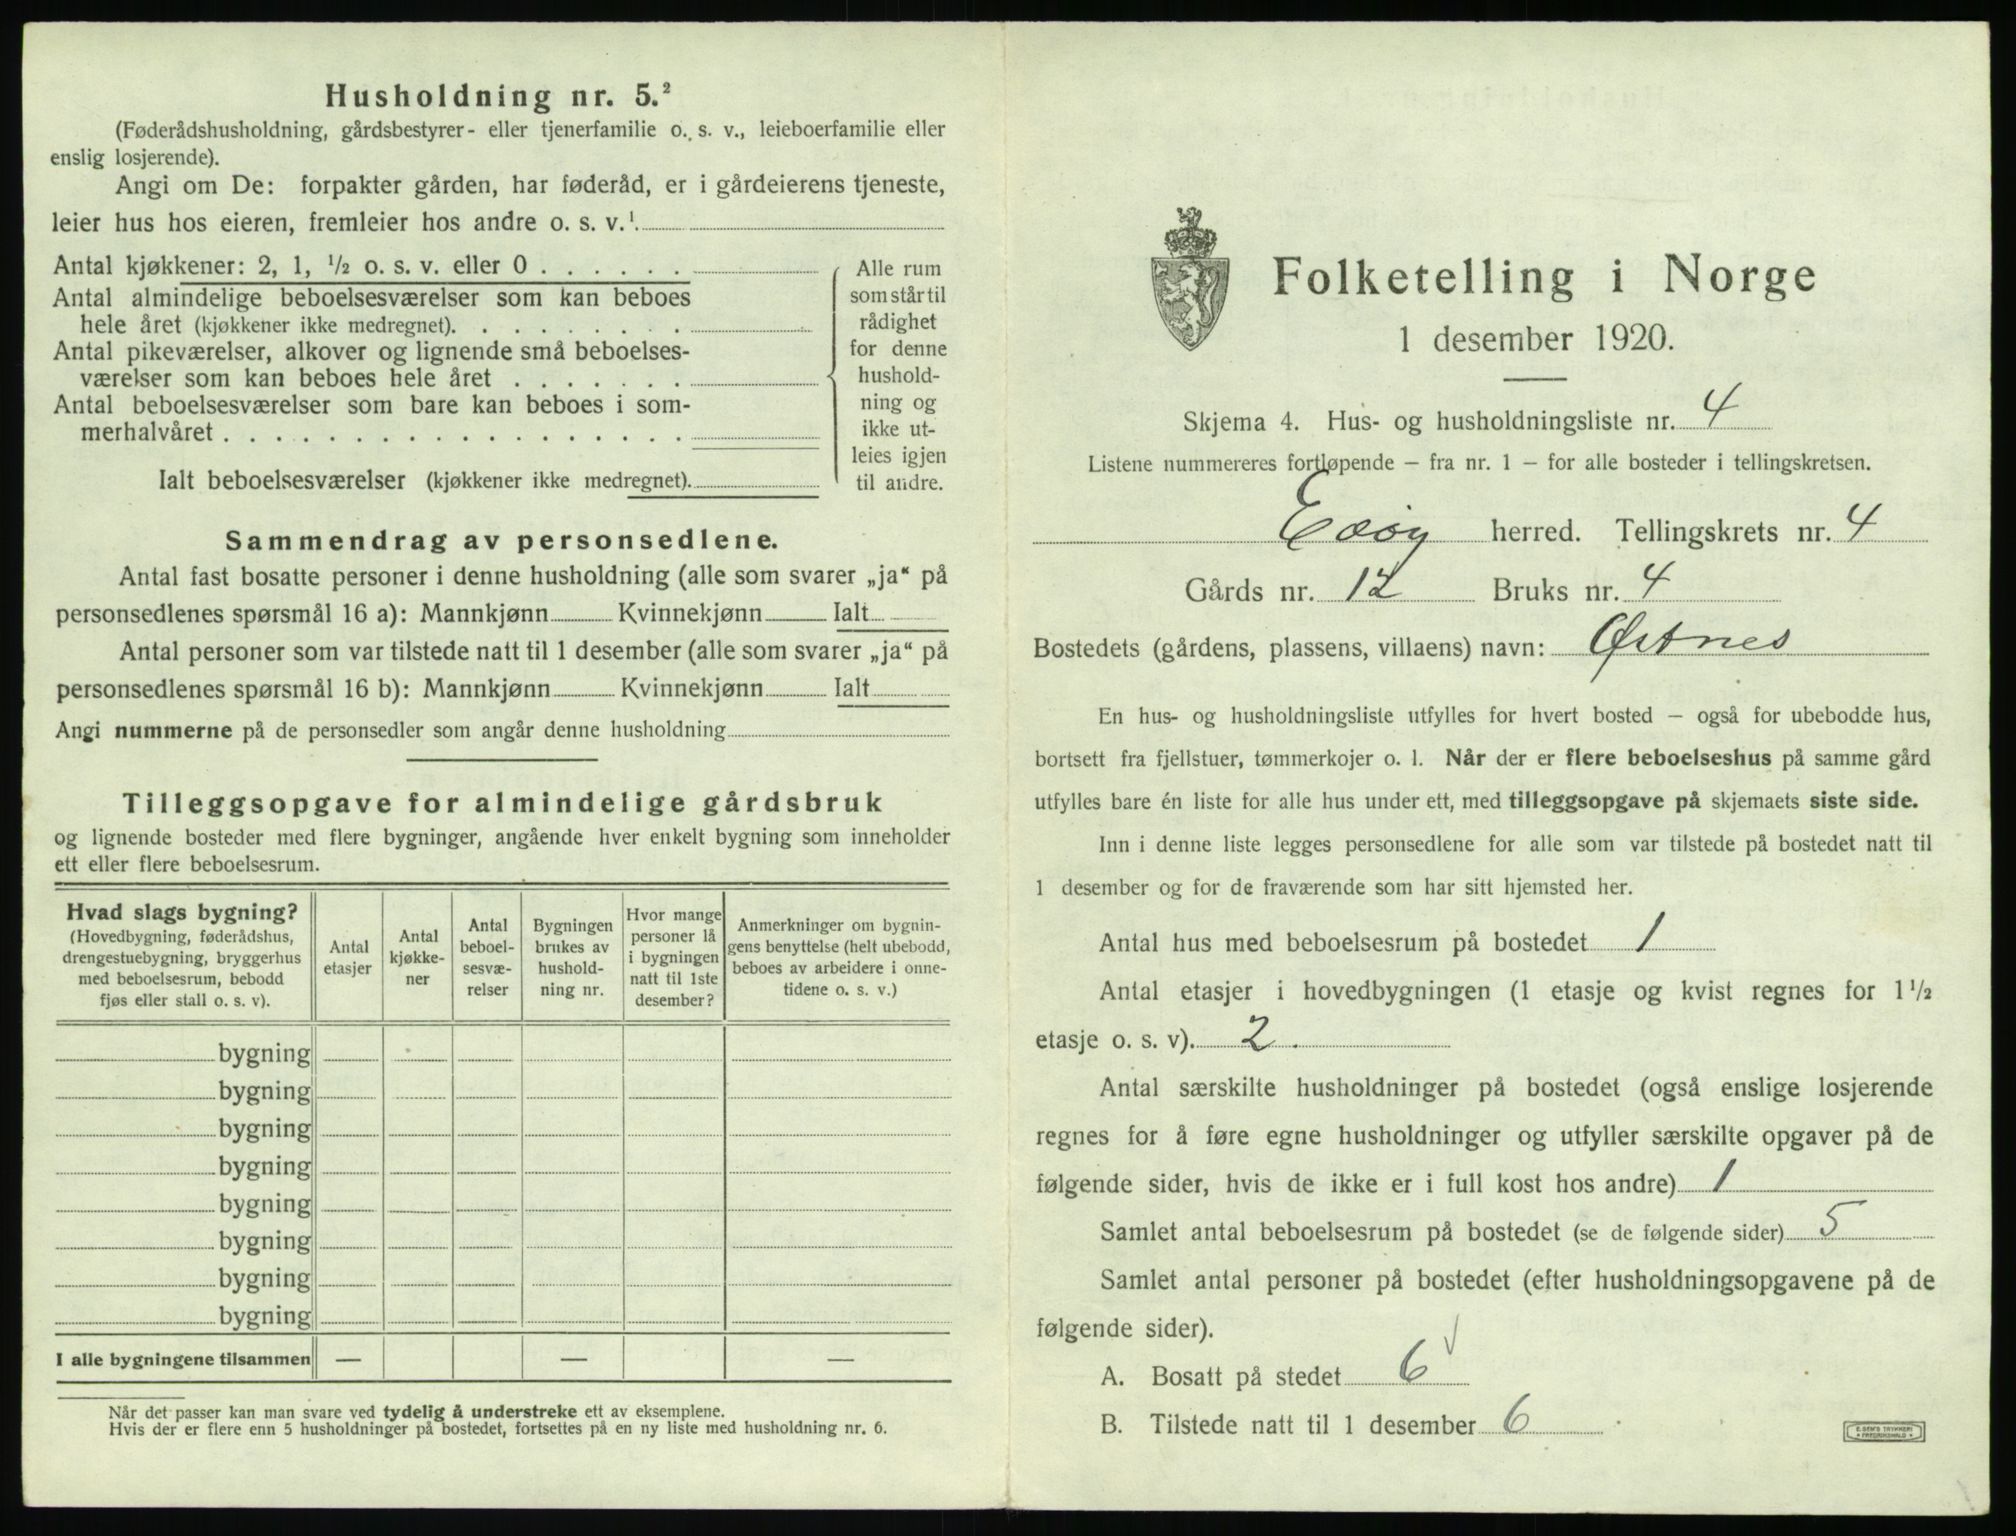 Husholdning nr. 5.²
(Føderådshusholdning, gårdsbestyrer- eller tjenerfamilie o. s. v., leieboerfamilie eller
enslig losjerende).
Angi om De: forpakter gården, har føderåd, er i gårdeierens tjeneste,
leier hus hos eieren, fremleier hos andre o. s. v.¹
Antal kjøkkener: 2, 1, ½ o. s. v. eller 0 . . . . . .
Antal almindelige beboelsesværelser som kan beboes
hele året (kjøkkener ikke medregnet). . . . . . . . .
Antal pikeværelser, alkover og lignende små beboelses-
værelser som kan beboes hele året . . . . . . .
Antal beboelsesværelser som bare kan beboes i som-
merhalvåret . . . . . . . . . . . . . . . . . .
Ialt beboelsesværelser (kjøkkener ikke medregnet).
Alle rum
som står til
rådighet
for denne
hushold-
ning og
ikke ut-
leies igjen
til andre.
Sammendrag av personsedlene.
Antal fast bosatte personer i denne husholdning (alle som svarer „ja“ på
personsedlenes spørsmål 16 a): Mannkjønn Kvinnekjønn Ialt
Antal personer som var tilstede natt til 1 desember (alle som svarer „ja“ på
personsedlenes spørsmål 16 b): Mannkjønn Kvinnekjønn Ialt
Angi nummerne på de personsedler som angår denne husholdning
Tilleggsopgave for almindelige gårdsbruk
og lignende bosteder med flere bygninger, angående hver enkelt bygning som inneholder
ett eller flere beboelsesrum.
Hvad slags bygning?
(Hovedbygning, føderådshus,
drengestuebygning, bryggerhus
med beboelsesrum, bebodd
fjøs eller stall o. s. v).
Antal
etasjer
Antal
kjøkke-
ner
Antal
beboel-
sesvæ-
relser
Bygningen
brukes av
hushold-
ning nr.
Hvor mange
personer lå
i bygningen
natt til 1ste
desember?
Anmerkninger om bygnin-
gens benyttelse (helt ubebodd,
beboes av arbeidere i onne-
tidene o. s. v.)
bygning
bygning
bygning
bygning
bygning
bygning
bygning
bygning
I alle bygningene tilsammen — — —
Når det passer kan man svare ved tydelig å understreke ett av eksemplene.
Hvis der er flere enn 5 husholdninger på bostedet, fortsettes på en ny liste med husholdning nr. 6.
Folketelling i Norge
1 desember 1920.
Skjema 4. Hus- og husholdningsliste nr. 4
Listene nummereres fortløpende – fra nr. 1 – for alle bosteder i tellingskretsen.
Edøy herred. Tellingskrets nr. 4
Gårds nr. 12 Bruks nr. 4
Bostedets (gårdens, plassens, villaens) navn: Østnes
En hus- og husholdningsliste utfylles for hvert bosted – også for ubebodde hus,
bortsett fra fjellstuer, tømmerkojer o. l. Når der er flere beboelseshus på samme gård
utfylles bare én liste for alle hus under ett, med tilleggsopgave på skjemaets siste side.
Inn i denne liste legges personsedlene for alle som var tilstede på bostedet natt til
1 desember og for de fraværende som har sitt hjemsted her.
Antal hus med beboelsesrum på bostedet 1
Antal etasjer i hovedbygningen (1 etasje og kvist regnes for 1½
etasje o. s. v). 2.
Antal særskilte husholdninger på bostedet (også enslige losjerende
regnes for å føre egne husholdninger og utfyller særskilte opgaver på de
følgende sider, hvis de ikke er i full kost hos andre) 1
Samlet antal beboelsesrum på bostedet (se de følgende sider) 5
Samlet antal personer på bostedet (efter husholdningsopgavene på de
følgende sider).
A. Bosatt på stedet 6 √
B. Tilstede natt til 1 desember 6
E. SEM'S TRYKKERI
• FREDRIKSHALD •